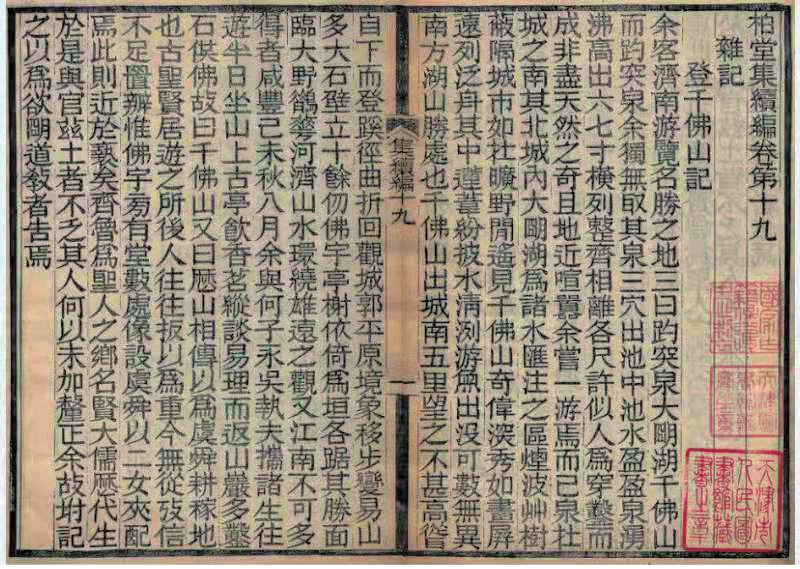 柏堂集續編卷第十九
雜記
登千佛山記
余客濟南游覽名勝之地三曰趵突泉大明湖千佛山
而趵突泉余獨無取其泉三穴出池中池水盈盈泉湧
沸高出六七寸橫列整齊相離各尺許似人爲穿鑿而
成非盡天然之奇且地近喧囂余嘗一游焉而已泉在
城之南其北城內大明湖爲諸水匯注之區煙波艸樹
蔽隔城市如在曠野閒遙見千佛山奇偉深秀如畫屏
遠列泛舟其中蓮葦紛披水淸洌游魚出没可數無異
南方湖山勝處也千佛山出城南五里望之不甚高嘗
集續編十九
一
自下而登蹊徑曲折回觀城郭平原境象移步變易山
多大石壁立十餘仞佛宇亭榭依倚爲垣各踞其勝面
臨大野鵲華河濟山水環繞雄遠之觀又江南不可多
得者咸豐己未秋八月余與何子永吳執夫攜諸生往
遊半日坐山上古亭飮香茗縱談易理而返山巖多鑿
石供佛故曰千佛山又曰歴山相傳以爲虞舜耕稼地
也古聖賢居遊之所後人往往扳以爲重今無從攷信
不足置辨惟佛宇旁有堂數處像設虞舜以二女夾配
焉此則近於褻矣齊魯爲聖人之鄉名賢大儒歴代生
於是與官茲土者不乏其人何以未加釐正余故坿記
之以爲欲明道敎者告焉
天津市
人民圖
書館藏
書之章